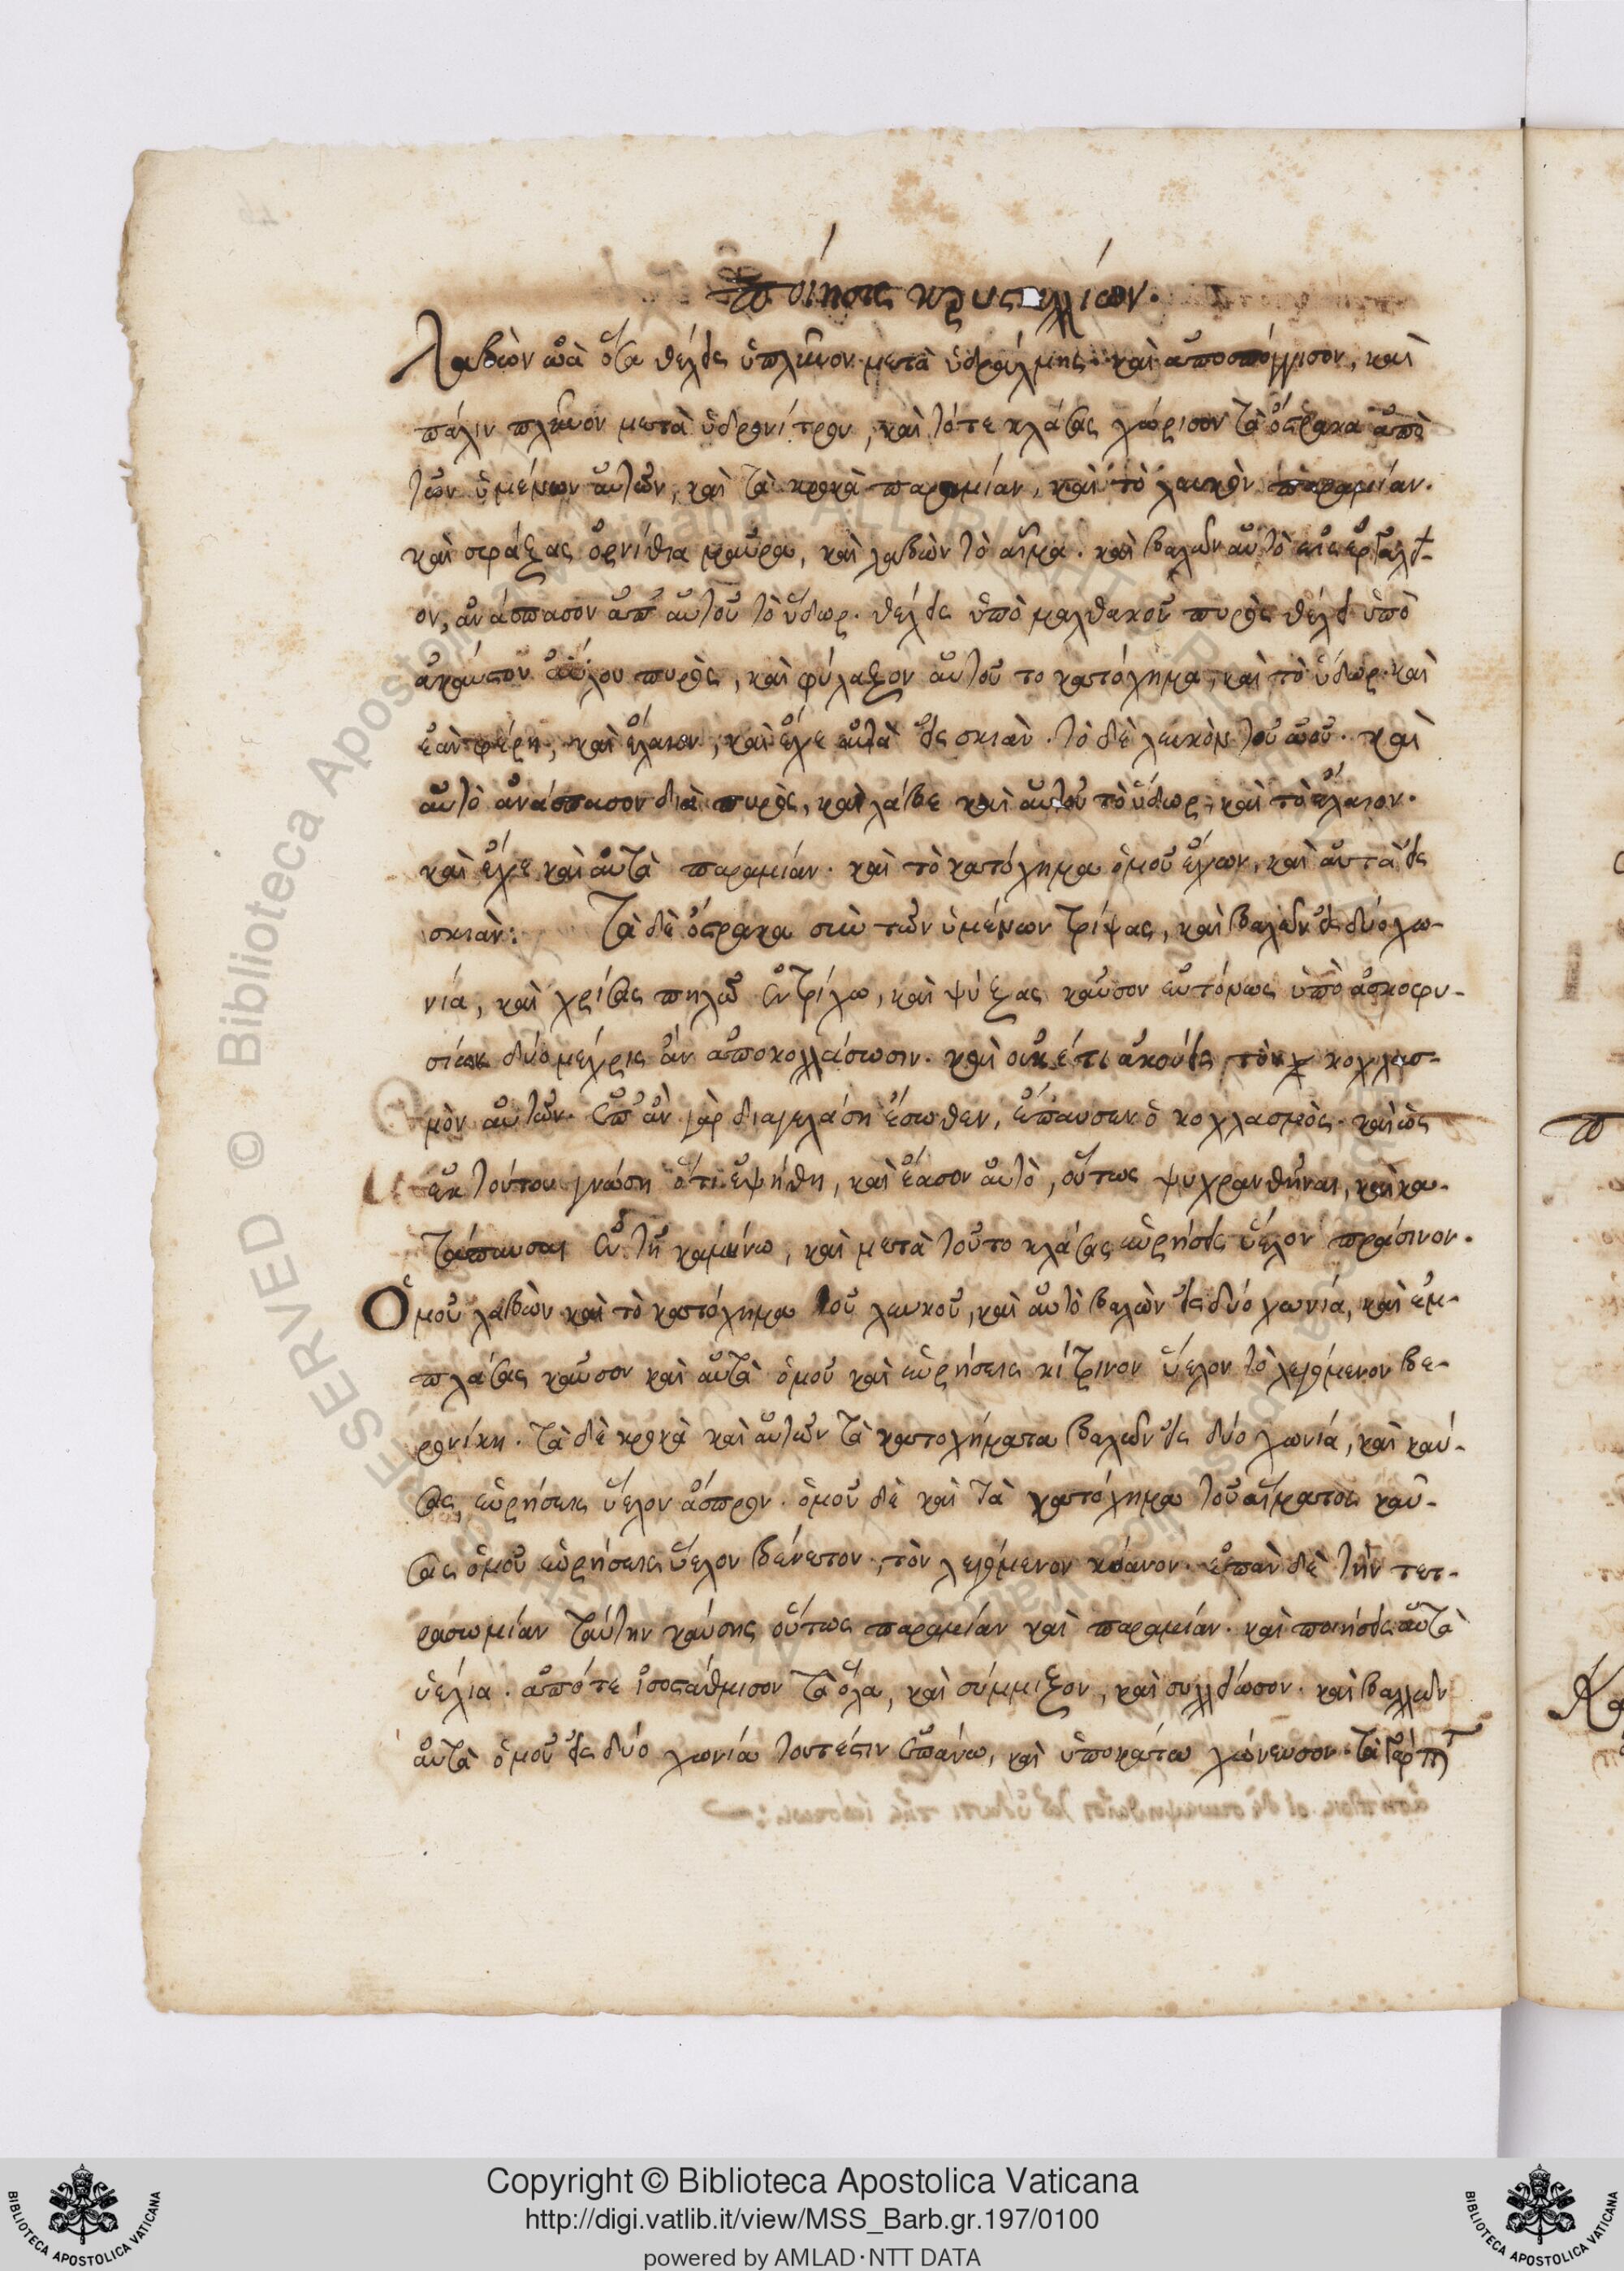 ποίησις κρυσταλλίων.
Λαβὼν ὠὰ ὅσα θέλεις ὑπλῦνον μετὰ ὑδράλμης· καὶ ἀποσπόγγισον, καὶ
πάλιν πλῦνον μετὰ ὑδρονίτρου, καὶ τότε κλάσας χώρισον τὰ ὄστρακα ἀπὸ
τῶν ὑμένων αὐτῶν, καὶ τὰ κροκὰ παραμίαν, καὶ τὸ λευκὸν παραμίαν.
καὶ σφάξας ὀρνίθια μαῦρα, καὶ λαβὼν τὸ αἷμα. καὶ βαλὼν αὐτὸ εἰς ἐργαλεῖ-
ον, ἀνάσπασον ἀπ' αὐτοῦ τὸ ὕδωρ. θέλεις ὑπὸ μαλθακοῦ πυρὸς θέλεις ὑπὸ
ἀκαύστου ἀΰλου πυρὸς, καὶ φύλαξον αὐτοῦ το κατόχημα, καὶ τὸ ὕδωρ. καὶ
ἐὰν φέρη, καὶ ἔλαιον, καὶ ἔχε αὐτὰ εἰς σκιὰν. τὸ δὲ λευκὸν τοῦ ὠοῦ. καὶ
αὐτὸ ἀνάσπασον διὰ πυρὸς, καὶ λάβε καὶ αὐτοῦ τὸ ὕδωρ, καὶ τὸ ἔλαιον.
καὶ ἔχε καὶ αὐτὰ παραμίαν. καὶ τὸ κατόχημα ὁμοῦ ἔχων, καὶ αὐτὰ εἰς
σκιὰν: Τὰ δὲ ὄστρακα σὺν τῶν ὑμένων τρίψας, καὶ βαλὼν εἰς δύο χω-
νία, καὶ χρίσας πηλῶ ἐντρίχω, καὶ ψύξας καῦσον εὐτόνως ὑπὸ ἀσκοφυ-
σίων δύο μέχρις ἂν ἀποκολλάσωσιν. καὶ οὐκέτι ἀκούεις τὸν κοχλασ-
μὸν αὐτῶν. ἐπ' ἂν γὰρ διαγελάση ἔσωθεν, ἔπαυσεν ὁ κοχλασμὸς. καὶ ὡς
ἐκ τούτου γνώση ὅτι ἑψήθη, καὶ ἔασον αὐτὸ, οὕτως ψυχρανθῆναι, καὶ κα-
τάπαυσαι ἐν τῆ καμίνω, καὶ μετὰ τοῦτο κλάσας εὑρήσεις ὕελον πράσινον.
Ὁμοῦ λαβὼν καὶ τὸ κατόχημα τοῦ λευκοῦ, καὶ αὐτὸ βαλὼν εἰς δύο χωνία, καὶ ἐμ-
πλάσας καῦσον καὶ αὐτὰ ὁμοῦ καὶ εὑρήσεις κίτρινον ὕελον τὸ λεγόμενον βε-
ρονίκη. τὰ δὲ κροκὰ καὶ αὐτῶν τὰ κατοχήματα βαλὼν εἰς δύο χωνία, καὶ καύ-
σας, εὑρήσεις ὕελον ἄσπρον. ὁμοῦ δὲ καὶ τὰ κατόχημα τοῦ αἵματος καῦ-
σας ὁμοῦ εὑρήσεις ὕελον βένετον, τὸν λεγόμενον κύανον. ἐπὰν δὲ τὴν τετ-
ρασωμίαν ταύτην καύσης οὕτως παραμίαν καὶ παραμίαν. καὶ ποιήσεις αὐτὰ
ὑέλια. ἀπότε ἰσοστάθμισον τὰ ὅλα, καὶ σύμμιξον, καὶ συλλείωσον. καὶ βαλλὼν
αὐτὰ ὁμοῦ εἰς δύο χωνία τουτέστιν ἐπάνω, καὶ ὑποκάτω χώνευσον.
Copyright © Biblioteca Apostolica Vaticana
http://digi.vatlib.it/view/MSS_Barb.gr.197/0100
powered by AMLAD·NTT DATA
BIBLIOTECA APOSTOLICA VATICANA
BIBLIOTECA APOSTOLICA VATICANA